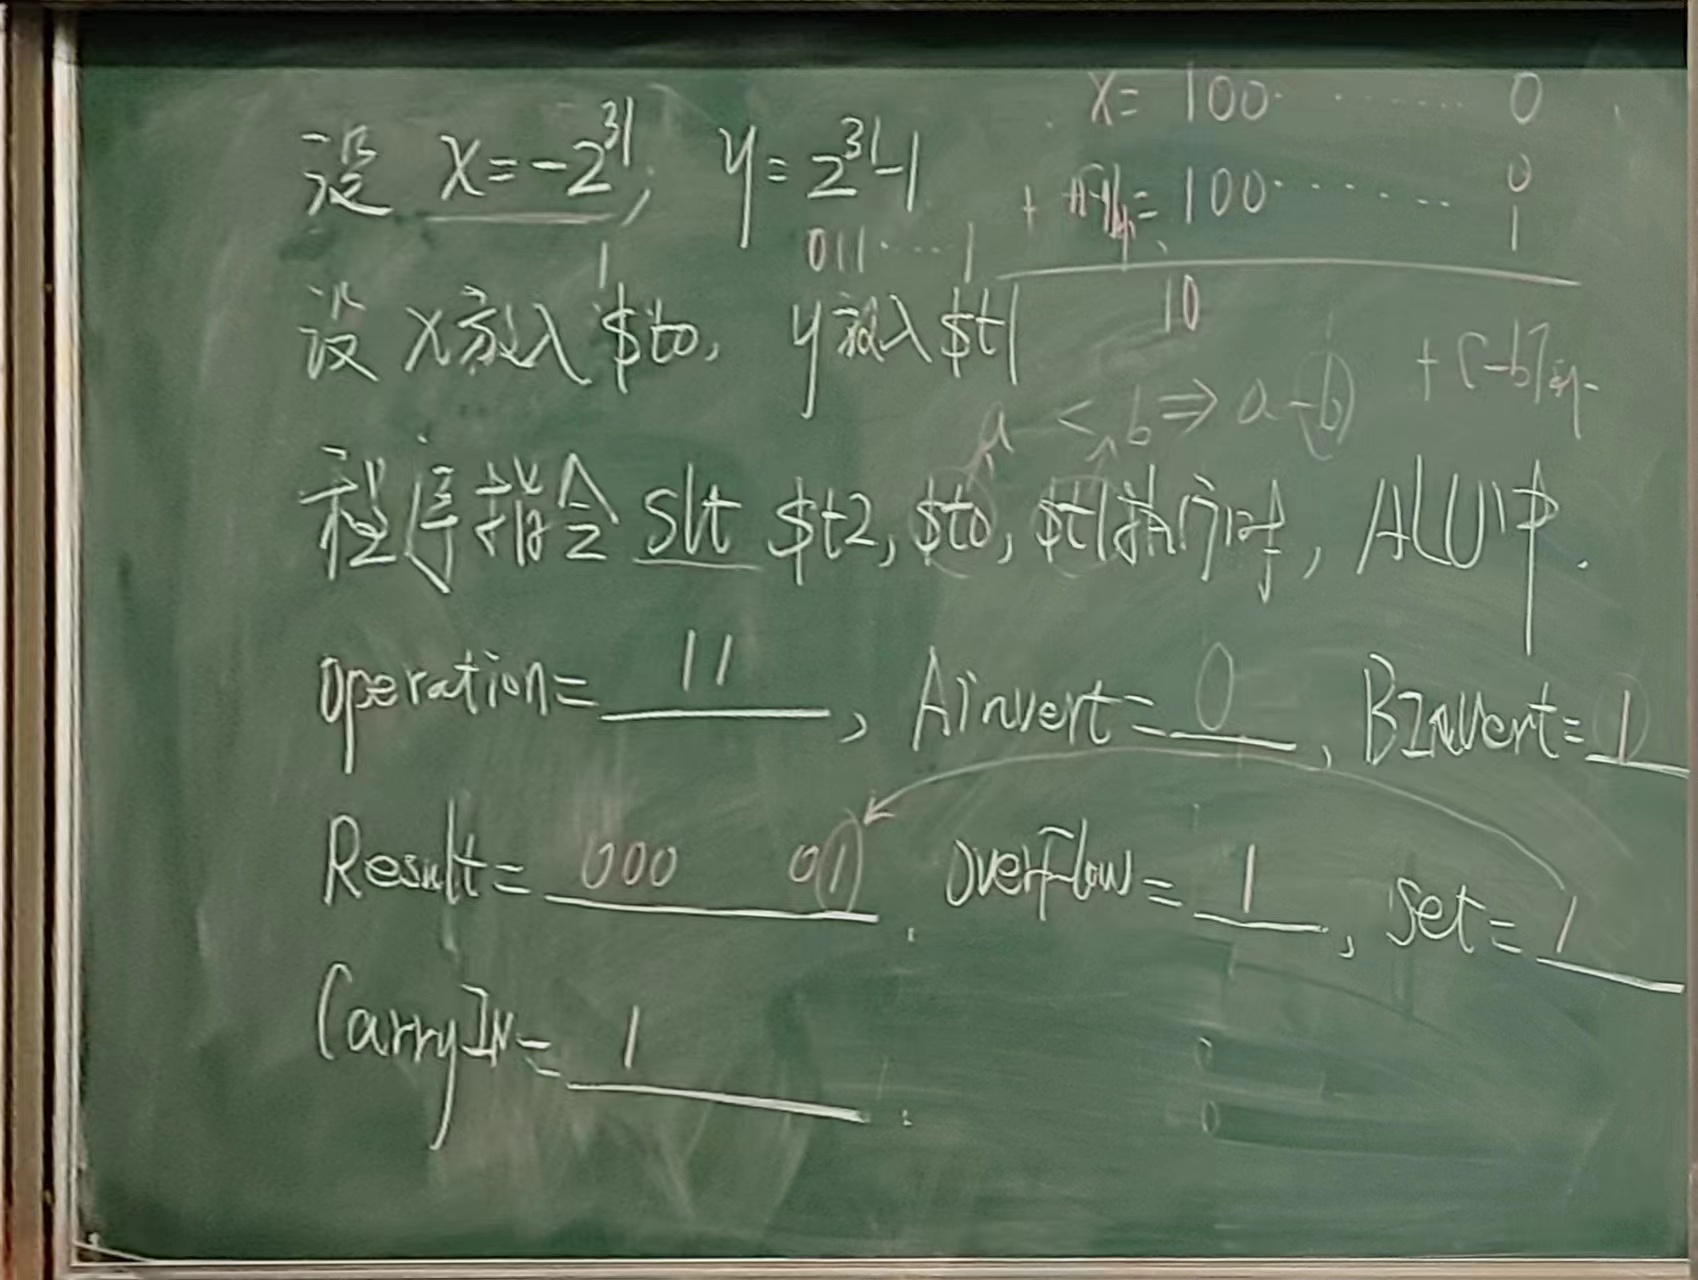 设 x=-2^31, y=2^31-1
011····1
1
x= 100········· 0
+ = 100········ 0
1
10
设 x放入 $t0, y放入 $t1
a < b ⇒ a-b
+ [-b]补
程序指令 slt $t2, $t0, $t1执行时, ALU中.
operation= 11, Ainvert= 0, BInvert= 1
Result= 000 01. overflow= 1, set= 1
CarryIN= 1.